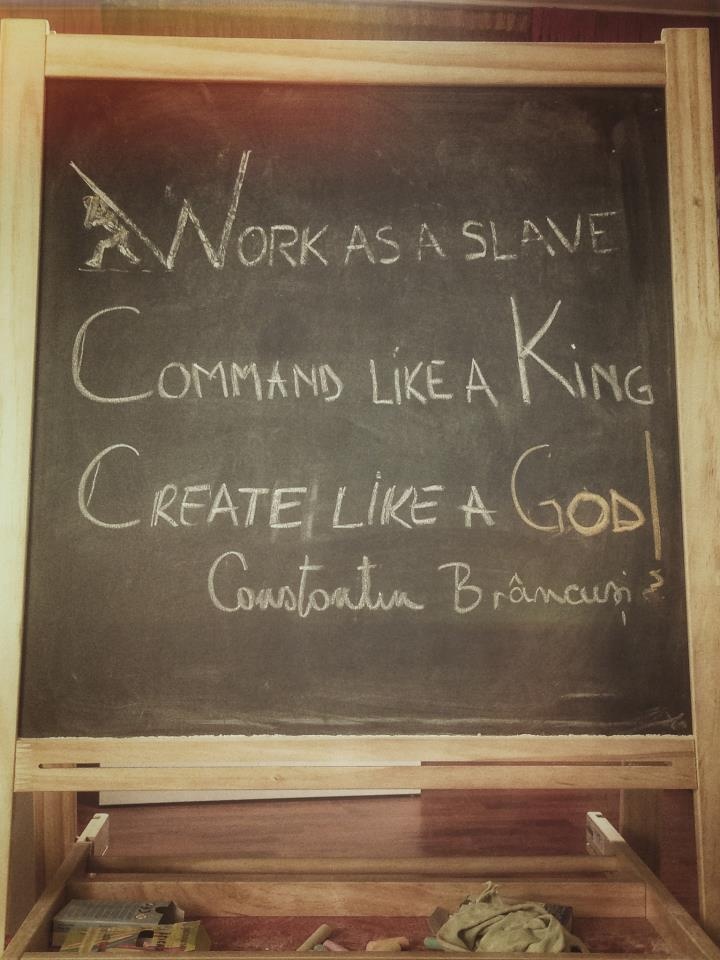 WORK AS A SLAVE
COMMAND LiKE A KiNG
CREATE LiKE A GOD!
Constantin Brâncuși